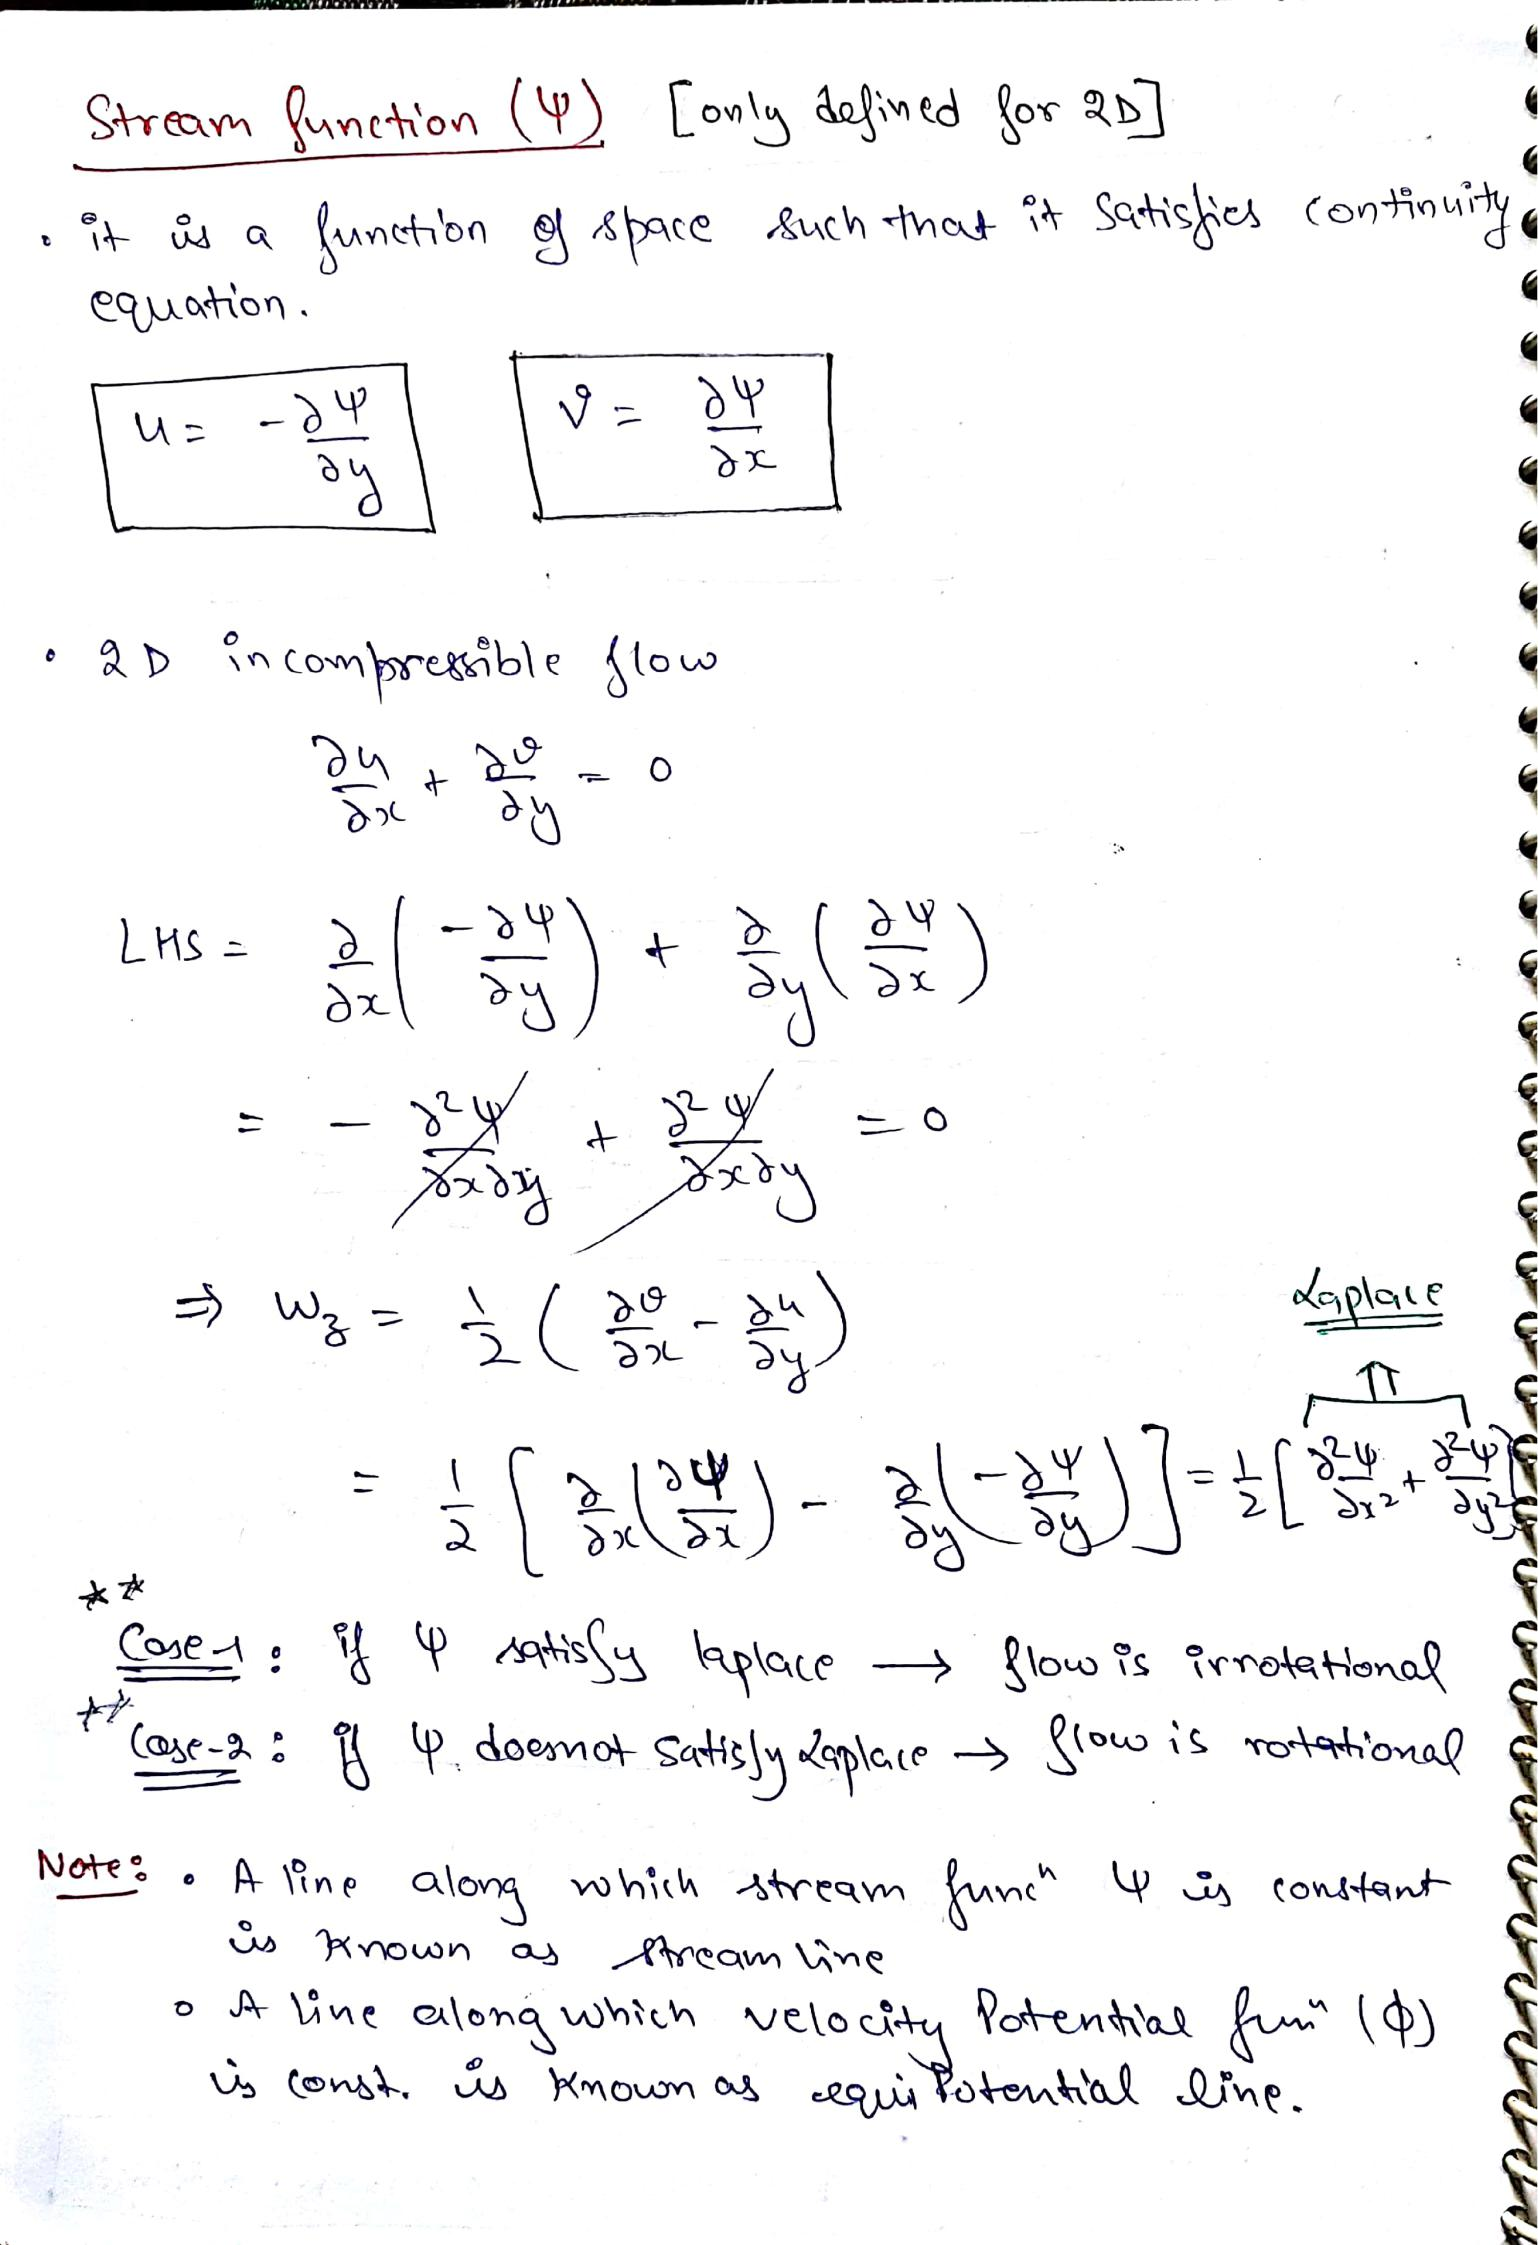 Stream function (ψ) [only defined for 2D]
• it is a function of space such that it satisfies continuity
equation.
u = -∂ψ/∂y    v = ∂ψ/∂x
• 2D incompressible flow
∂u/∂x + ∂v/∂y = 0
LHS = ∂/∂x (-∂ψ/∂y) + ∂/∂y (∂ψ/∂x)
= - ∂²ψ/∂x∂y + ∂²ψ/∂x∂y = 0
⇒ ω_z = 1/2 (∂v/∂x - ∂u/∂y)
Laplace
⇑
= 1/2 [∂/∂x (∂ψ/∂x) - ∂/∂y (-∂ψ/∂y)] = 1/2 [∂²ψ/∂x² + ∂²ψ/∂y²]
**
Case-1 : if ψ satisfy laplace → flow is irrotational
**
Case-2 : if ψ doesnot satisfy Laplace → flow is rotational
Note: • A line along which stream funcⁿ ψ is constant
is known as stream line
• A line along which velocity Potential funⁿ (ϕ)
is const. is known as equiPotential line.